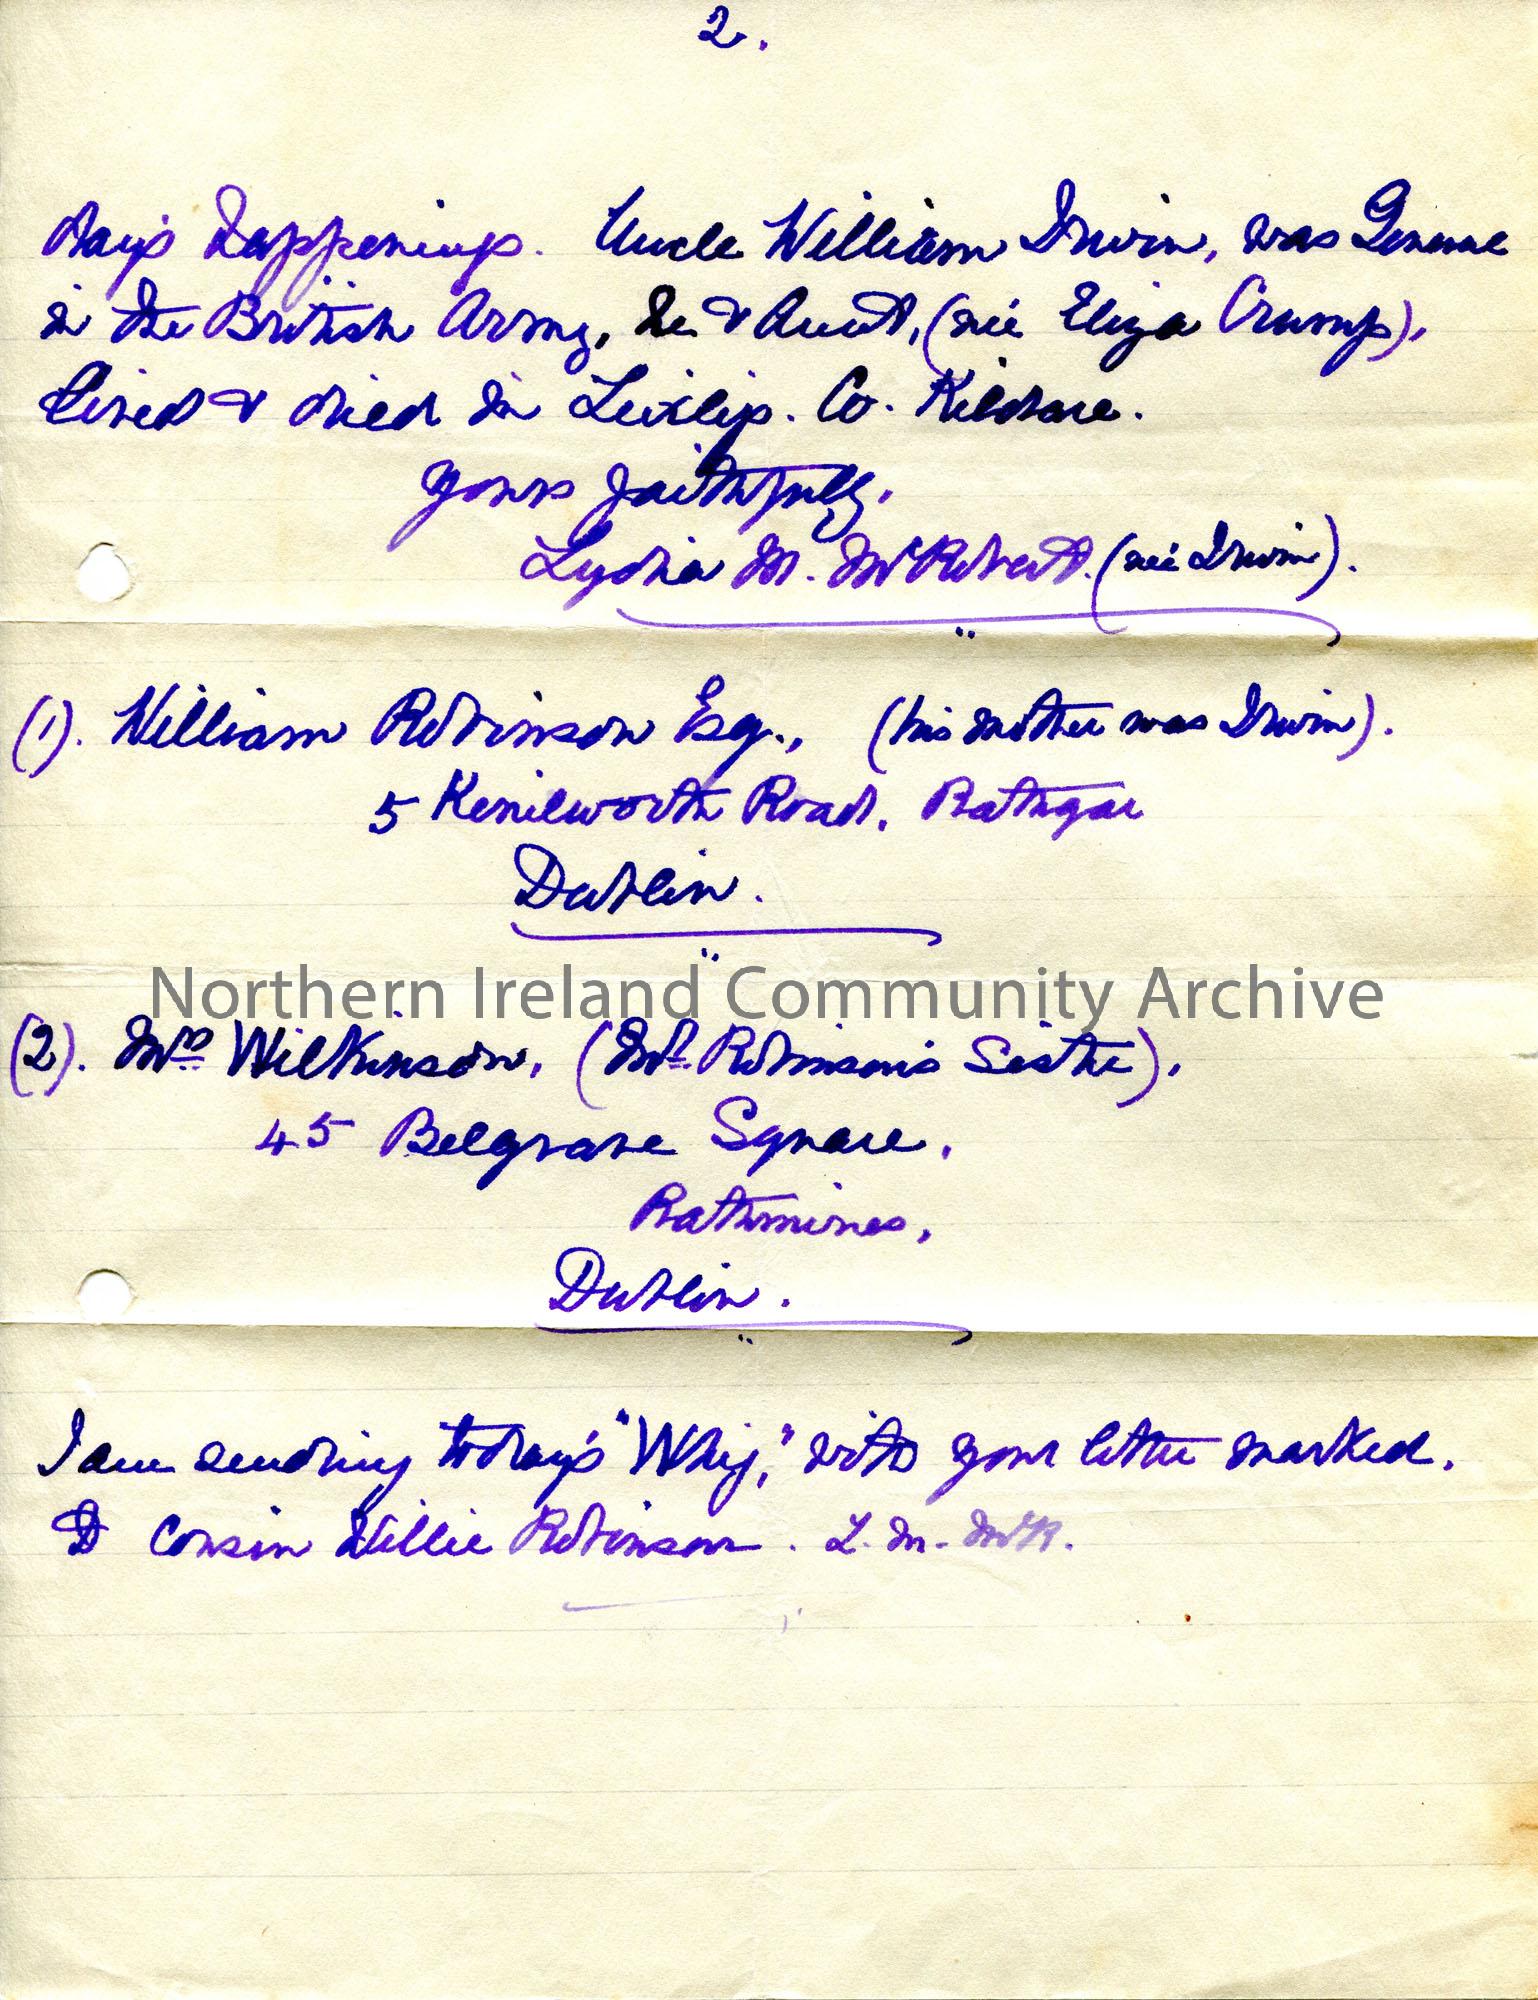 2.
day's happenings. Uncle William Irwin, was General
in the British Army, he & Aunt, (neé Eliza Crump),
lived & died in Leixlip. Co. Kildare.
Yours faithfully,
Lydia M. McRobert. (neé Irwin).
(1). William Robinson Esq., (his mother was Irwin).
5 Kenilworth Road, Rathgar
Dublin.
Northern Ireland Community Archive
(2). Mrs Wilkinson, (Mr Robinson's Sister),
45 Belgrave Square,
Rathmines,
Dublin.
I am sending today's "Whig," with your letter marked,
to Cousin Willie Robinson. L. M. McR.